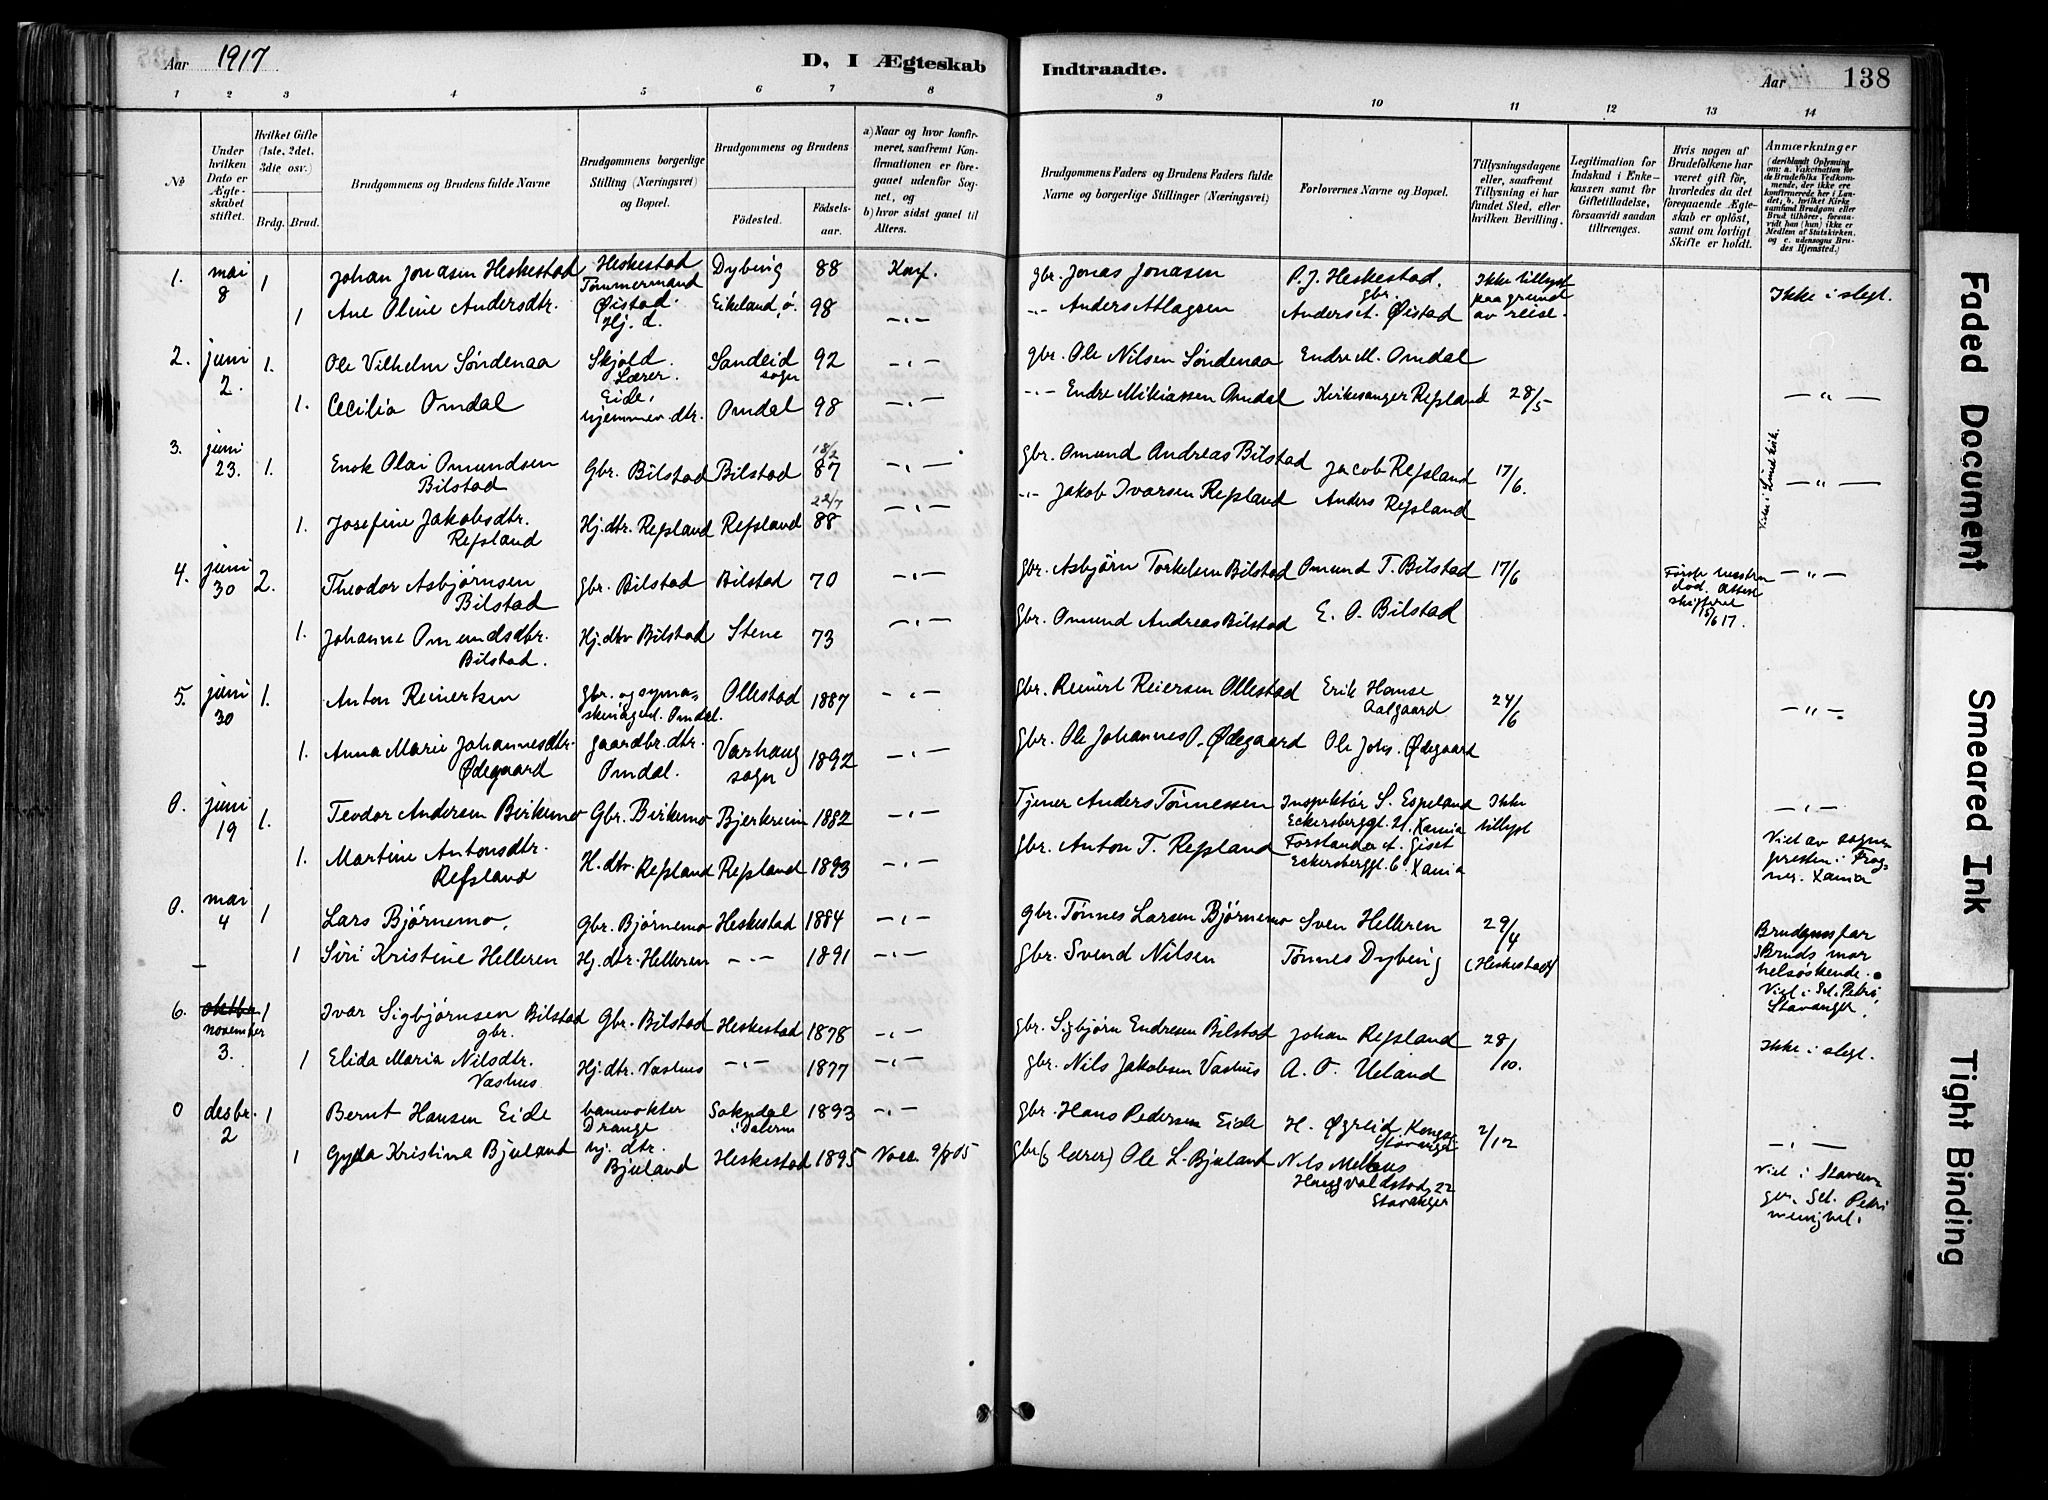 Aar 1917 D, I Ægteskab Indtraadte. Aar 138
1 2 3 4 5 6 7 8 9 10 11 12 13 14
№
Under hvilken Dato er Ægteskabet stiftet.
Hvilket Gifte (1ste, 2det, 3die osv.)
Brdg. Brud.
Brudgommens og Brudens fulde Navne
Brudgommens borgerlige Stilling (Næringsvei) og Bopæl.
Brudgommens og Brudens
Fødested. Fødsels-aar.
a) Naar og hvor konfirmeret, saafremt Konfirmationen er foregaaet udenfor Sognet, og
b) hvor sidst gaaet til Alters.
Brudgommens Faders og Brudens Faders fulde Navne og borgerlige Stillinger (Næringsvei)
Forlovernes Navne og Bopæl.
Tillysningsdagene eller, saafremt Tillysning ei har fundet Sted, efter hvilken Bevilling.
Legitimation for Indskud i Enkekassen samt for Giftetilladelse, forsaavidt saadan tiltrænges.
Hvis nogen af Brudefolkene har været gift før, hvorledes da det foregaaende Ægteskab er opløst, samt om lovligt Skifte er holdt.
Anmærkninger (deriblandt Oplysning om: a. Vakcination for de Brudefolks Vedkommende, der ikke ere konfirmerede her i Landet; b. hvilket Kirkesamfund Brudgom eller Brud tilhører, forsaavidt han (hun) ikke er Medlem af Statskirken, og c. udensogns Brudes Hjemsted.)
1. mai 8 1 Johan Jonasen Heskestad Heskestad Tømmermand Dybing 88 Konf. gbr. Jonas Jonasen P. J. Heskestad. gbr. Ikke tillyst paa grund av reise. Ikke i slegt.
1 Ane Oline Andersdtr. Øistad. Hj. d. Eikeland, ø. 98 -"- -"- Anders Atlagsen Anders A. Øistad
2. juni 2. 1. Ole Vilhelm Søndenaa Skjold. Lærer. Sandeid sogn 92 -"- gbr. Ole Nilsen Søndenaa Endre M. Omdal
1. Cecilia Omdal Eide, hjemmev. dtr. Omdal 98 -"- -"- Endre Mikiassen Omdal Kirkesanger Refsland 28/5 -"-
3. juni 23. 1. Enok Olai Omundsen Bilstad Gbr. Bilstad Bilstad 18/2 87 -"- gbr. Omund Andreas Bilstad Jacob Refsland 17/6. -"-
1. Josefine Jakobsdtr. Refsland Hj. dtr. Refsland Refsland 22/7 88 -"- -"- Jakob Ivarsen Refsland Anders Refsland
4. juni 30 2. Theodor Asbjørnsen Bilstad gbr. Bilstad Bilstad 70 -"- gbr. Asbjørn Torkelsen Bilstad Omund T. Bilstad 17/6 Første hustru død. Attest skifteret 15/6 17. -"-
1. Johanne Omundsdtr. Bilstad. Hj. dtr Bilstad Stene 73 -"- gbr. Omund Andreas Bilstad E. O. Bilstad
5. juni 30 1. Anton Reinertsen gbr. og symaskinagent. Omdal. Ollestad 1887 -"- gbr. Reinert Reiersen Ollestad Erik Hanse Aalgaard 24/6 -"-
1. Anna Marie Johannesdtr. Ødegaard gaardbr. dtr. Omdal. Varhaug sogn 1892 -"- gbr. Ole Johannes O. Ødegaard Ole Johs. Ødegaard
0. juni 19 1. Teodor Andersen Birkemo Gbr. Birkemo Bjerkreim 1882 -"- Tjener Anders Tønnessen Inspektør S. Espeland Eckersberggt. 21. Xania Ikke tillyst -"-
1. Martine Antonsdtr. Refsland H. dtr. Refsland Refsland 1893 -"- gbr. Anton T. Refsland Forstander A. Gjset Eckersberggt. 6. Xania Viet av sognepresten i Frogner. Xania
0. mai 4 1 Lars Bjørnemo. Gbr. Bjørnemo Heskestad 1884 -"- gbr. Tønnes Larsen Bjørnemo Sven Helleren 29/4 Brudgomsfar & Bruds mor helsøskende. Viet i St. Petri, Stavanger.
1 Siri Kristine Helleren Hj. dtr. Helleren -"- 1891 -"- gbr. Svend Nilsen Tønnes Dybing (Heskestad)
6. oktbr november 3. 1 Ivar Sigbjørnsen Bilstad gbr. Gbr. Bilstad Heskestad 1878 -"- gbr. Sigbjørn Endresen Bilstad Johan Refsland 28/10. Ikke i slegt.
1 Elida Maria Nilsdtr. Vashus Hj. dtr. Vashus -"- 1877 -"- gbr. Nils Jakobsen Vashus A. O. Ueland
0 desbr. 2 1 Bernt Hansen Eide banevokter Drange Sokndal i Dalerne 1893 -"- gbr Hans Pedersen Eide H. Øgreid Stavanger 2/12 -"-
1 Gyda Kristina Bjuland hj. dtr. Bjuland Heskestad 1895 gbr (& lærer) Ole L. Bjuland Nils 22 Stavanger Viet i Stavanger, St. Petri menighet.
Faded Document
Smeared Ink
Tight Binding